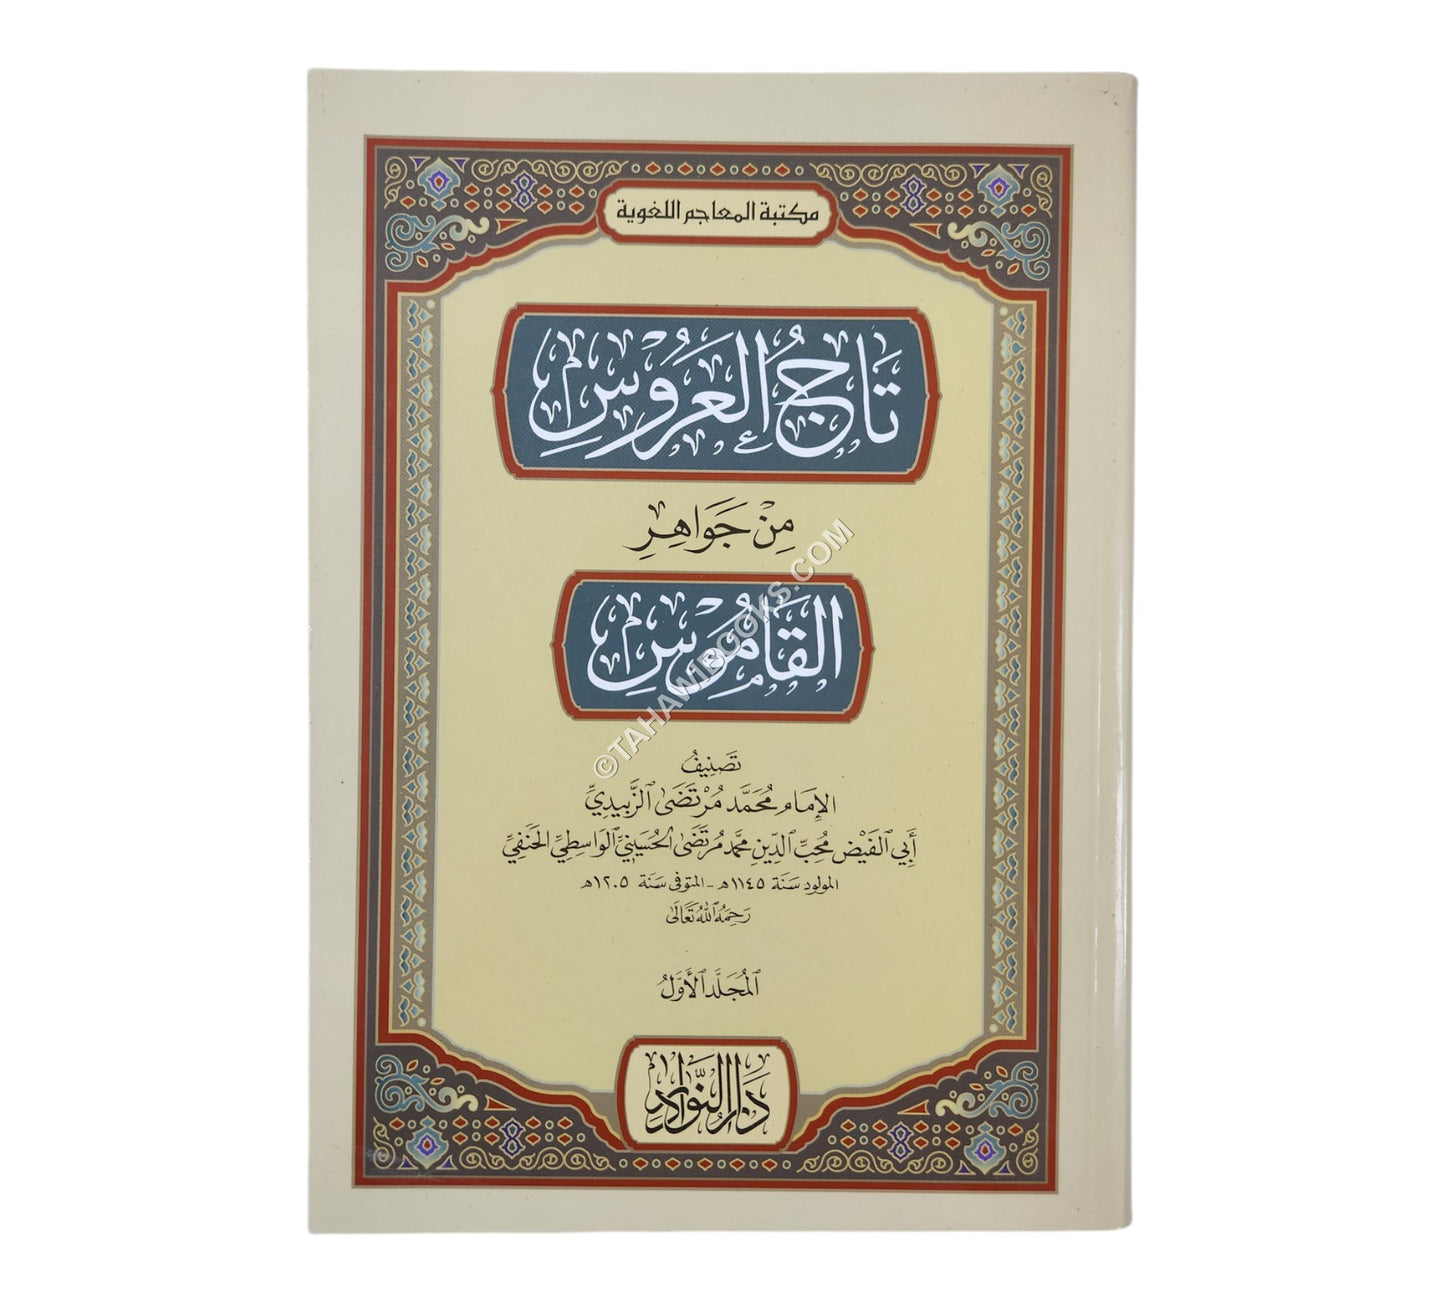 مكتبة المعاجم اللغوية
تَاجُ العَرُوسِ
مِنْ جَوَاهِرِ
القَامُوسِ
©TAHAWIBOOKS.COM
تَصنِيفُ
الإِمَام مُحَمَّد مُرْتَضَى الزَّبِيدِيِّ
أَبِي الفَيْضِ مُحِبِّ الدِّينِ مُحَمَّد مُرتَضَى الحُسَينيِّ الوَاسِطِيِّ الحَنَفِيِّ
المولود سَنَة ١١٤٥هـ - المتوفى سَنَة ١٢٠٥هـ
رَحِمَهُ اللهُ تَعَالَى
المُجَلَّد الأَوَّلُ
دَارُ النَّوَادِرِ